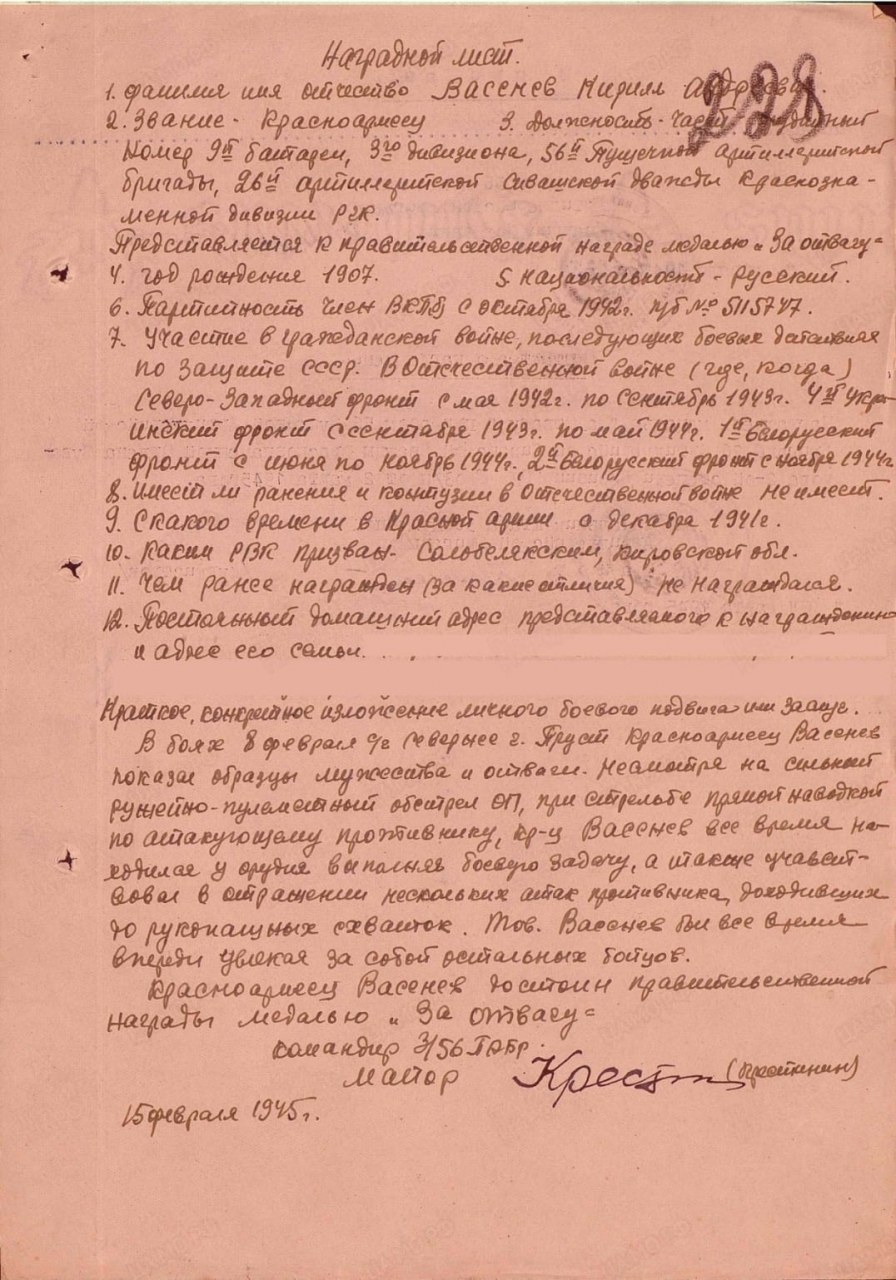 Наградной лист.
1. фамилия имя отчество Васенев Кирилл
228
2. Звание - Красноармеец 3. Должность-часть
Номер 9й батареи, 3го дивизиона, 56й Пушечной артиллерийской
бригады, 26й артиллерийской Сивашской дважды Краснозна-
менной дивизии РГК.
Представляется к правительственной награде медалью „За отвагу"
4. год рождения 1907. 5. Национальность - русский.
6. Партийность член ВКП(б) с октября 1942г. п/б № 5115747.
7. Участие в гражданской войне, последующих боевых действиях
по защите СССР. В Отечественной войне (где, когда)
Северо-Западный фронт с мая 1942г. по сентябрь 1943г. 4й Укра-
инский фронт с сентября 1943г. по май 1944г. 1й Белорусский
фронт с июня по ноябрь 1944г., 2й Белорусский фронт с ноября 1944г
8. Имеет ли ранения и контузии в Отечественной войне не имеет.
9. С какого времени в Красной армии с декабря 1941г.
10. Каким РВК призван - Салобелякским, Кировской обл.
11. Чем ранее награжден (за какие отличия) не награждался.
12. Постоянный домашний адрес представляемого к награждению
и адрес его семьи.
Краткое, конкретное изложение личного боевого подвига или заслуг.
В боях 8 февраля с/г севернее г. Пруст Красноармеец Васенев
показал образцы мужества и отваги. Несмотря на сильный
ружейно-пулеметный обстрел ОП, при стрельбе прямой наводкой
по атакующему противнику, кр-ц Васенев все время на-
ходился у орудия выполняя боевую задачу, а также участ-
вовал в отражении нескольких атак противника, доходивших
до рукопашных схваток. Тов. Васенев был все время
впереди увлекая за собой остальных бойцов.
Красноармеец Васенев достоин правительственной
награды медалью „За отвагу"
Командир 3/56 ПАБр.
Майор
15 февраля 1945г.